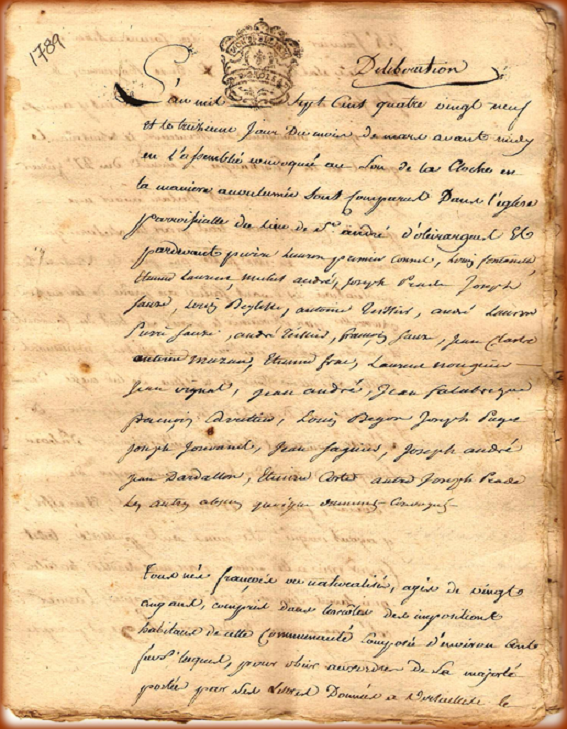 1789
Deliberation
L'an mil sept cens quatre vingt neuf
et le treizieme Jour du mois de mars avant midy
en l'assemblée convoquée au Son de la Cloche en
la maniere accoutumée Sont Comparus Dans l'eglise
parroissialle du lieu de St andré d'oleirargues Et
pardevant pierre Lauron premier Consul, Louis fontanille
Etienne Laurent michel andré, Joseph Joseph
faure, Louis antoine Teissier, andré Lauron
Pierre faure, andré Teissier, françois faure, Jean
antoine mazan, Etienne frac, Laurent nouguier
Jean vignal, jean andré, Jean Salabregue
françois Louis Begon Joseph Page
Joseph Jouvanel, Jean Joseph andré
Jean Dardallon, Etienne Coste autre Joseph
Les autres absens
Tous nés françois ou naturalisés, agés de vingt
cinq ans, compris dans les rolles des impositions
habitans de cette Communauté Composée d'environ cent
feus lesquels, pour obeir aux ordres de Sa majesté
portés par Ses Lettres Données a Versailles le